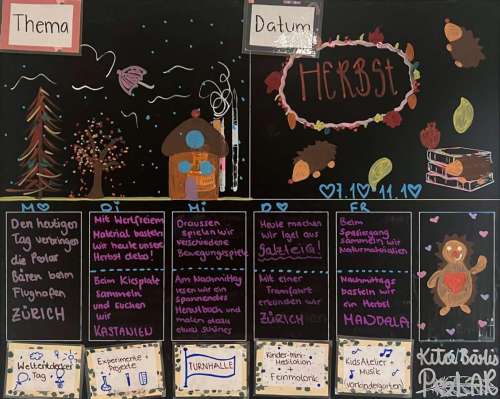 Thema
Datum
HERBST
07.10 11.10
Mo
Di
Mi
Do
FR
Den heutigen
Tag verbringen
die Polar
Bären beim
Flughafen
ZÜRICH
Mit Wertfreiem
Material basteln
wir heute unsere
Herbst deko!
Beim Kiesplatz
sammeln
und suchen
wir
KASTANIEN
Draussen
spielen wir
verschiedene
Bewegungsspiele
Am Nachmittag
lesen wir ein
spannendes
Herbstbuch und
malen dazu
etwas schönes
Heute machen
wir Igel aus
Salzteig!
Mit einer
Tramfahrt
erkunden wir
ZÜRICH
Beim
Spaziergang
sammeln wir
Naturmaterialien
Nachmittags
basteln wir
ein Herbst
MANDALA
Weltentdecker
Tag
Experimente
Projekte
TURNHALLE
Kinder-Mini-
Meditation +
Feinmotorik
Kids Atelier +
Musik
(Vorkindergarten)
Kita Bärlis
POLAR